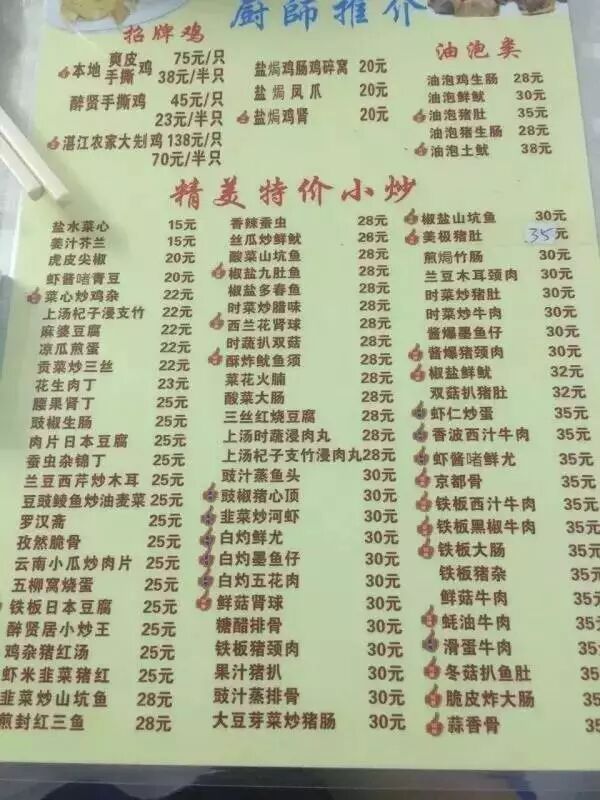 厨師推介
招牌鸡
本地 爽皮鸡 75元/只
手撕鸡 38元/半只
醉贤手撕鸡 45元/只
23元/半只
湛江农家大刣鸡 138元/只
70元/半只
盐焗鸡肠鸡碎窝 20元
盐焗凤爪 20元
盐焗鸡肾 20元
油泡类
油泡鸡生肠 28元
油泡鲜鱿 30元
油泡猪肚 35元
油泡猪生肠 28元
油泡土鱿 38元
精美特价小炒
盐水菜心 15元
姜汁芥兰 15元
虎皮尖椒 20元
虾酱啫青豆 20元
菜心炒鸡杂 22元
上汤杞子浸支竹 22元
麻婆豆腐 22元
凉瓜煎蛋 22元
贡菜炒三丝 22元
花生肉丁 23元
腰果肾丁 25元
豉椒生肠 25元
肉片日本豆腐 25元
蚕虫杂锦丁 25元
兰豆西芹炒木耳 25元
豆豉鲮鱼炒油麦菜 25元
罗汉斋 25元
孜然脆骨 25元
云南小瓜炒肉片 25元
五柳窝烧蛋 25元
铁板日本豆腐 25元
醉贤居小炒王 25元
鸡杂猪红汤 25元
虾米韭菜猪红 25元
韭菜炒山坑鱼 28元
煎封红三鱼 28元
香辣蚕虫 28元
丝瓜炒鲜鱿 26元
酸菜山坑鱼 28元
椒盐九肚鱼 28元
椒盐多春鱼 28元
时菜炒腊味 28元
西兰花肾球 28元
时蔬扒双菇 28元
酥炸鱿鱼须 28元
菜花火腩 28元
酸菜大肠 28元
三丝红烧豆腐 28元
上汤时蔬浸肉丸 28元
上汤杞子支竹浸肉丸 28元
豉汁蒸鱼头 30元
豉椒猪心顶 30元
韭菜炒河虾 30元
白灼鲜尤 30元
白灼墨鱼仔 30元
白灼五花肉 30元
鲜菇肾球 30元
糖醋排骨 30元
铁板猪颈肉 30元
果汁猪扒 30元
豉汁蒸排骨 30元
大豆芽菜炒猪肠 30元
椒盐山坑鱼 30元
美极猪肚 35元
煎焗竹肠 30元
兰豆木耳颈肉 30元
时菜炒猪肚 30元
时菜炒牛肉 30元
酱爆墨鱼仔 30元
酱爆猪颈肉 30元
椒盐鲜鱿 32元
双菇扒猪肚 32元
虾仁炒蛋 35元
香波西汁牛肉 35元
虾酱啫鲜尤 35元
京都骨 35元
铁板西汁牛肉 35元
铁板黑椒牛肉 35元
铁板大肠 35元
铁板猪杂 35元
鲜菇牛肉 35元
蚝油牛肉 35元
滑蛋牛肉 35元
冬菇扒鱼肚 35元
脆皮炸大肠 35元
蒜香骨 35